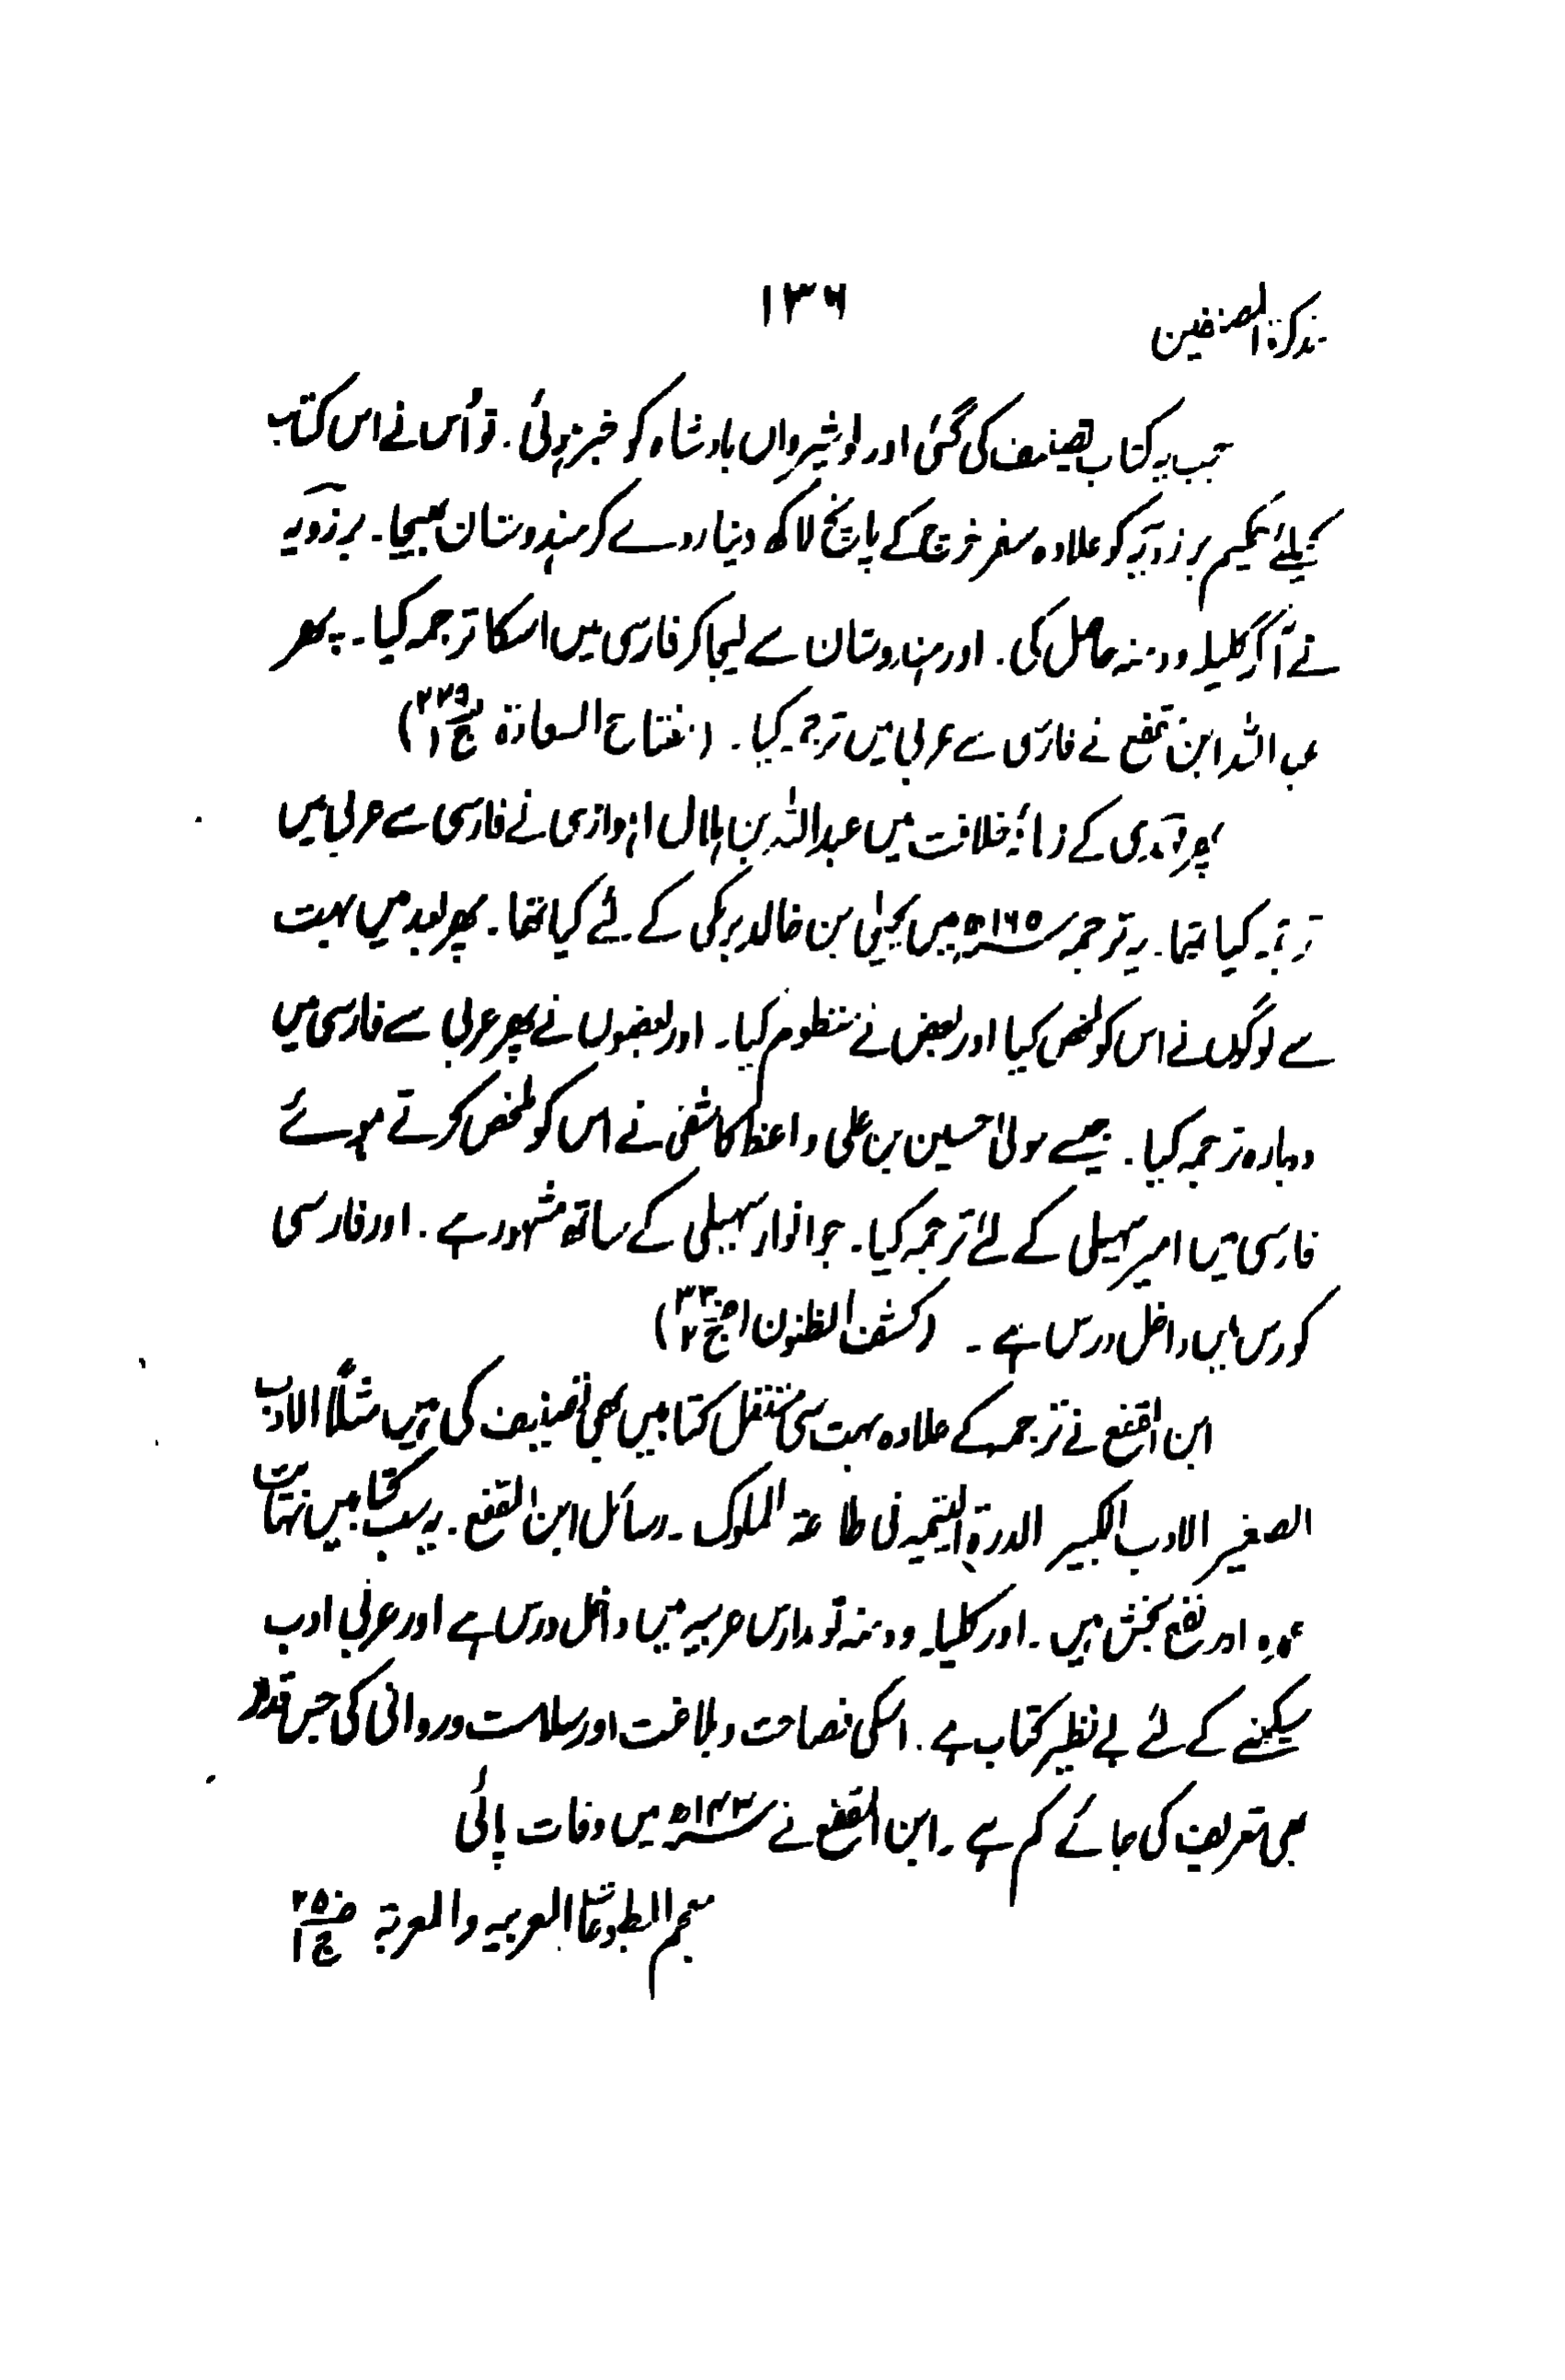 تذکرۃ المصنفین
۱۳۶
جب یہ کتاب تصنیف کی گئی اور نوشیرواں بادشاہ کو خبر ہوئی. تو اُس نے اس کتاب
کیلئے حکیم برزویہ کو علاوہ سفر خرچ کے پانچ لاکھ دینار دے کر ہندوستان بھیجا۔ برزویہ
نے آکر کلیلہ ودمنہ حاصل کی. اور ہندوستان سے لیجا کر فارسی میں اسکا ترجمہ کیا۔ پھر
عبد اللہ ابن مقفع نے فارسی سے عربی میں ترجمہ کیا۔ (مفتاح السعادۃ ج۱)
پھر مہدی کے زمانۂ خلافت میں عبداللہ بن ہلال اہوازی نے فارسی سے عربی میں
ترجمہ کیا تھا۔ یہ ترجمہ ۱۶۵ھ میں یحییٰ بن خالد برمکی کے لئے کیا تھا۔ پھر بعد میں بہت
سے لوگوں نے اس کو ملخص کیا اور بعض نے منظوم کیا۔ اور بعضوں نے پھر عربی سے فارسی میں
دوبارہ ترجمہ کیا. جیسے مولیٰ حسین بن علی واعظ کاشفی نے اس کو ملخص کرتے ہوئے
فارسی میں امیر سہیلی کے لئے ترجمہ کیا۔ جو انوار سہیلی کے ساتھ مشہور ہے. اور فارسی
کورس میں داخل درس ہے ۔ (کشف الظنون ج۲)
ابن المقفع نے ترجمہ کے علاوہ بہت سی مستقل کتابیں بھی تصنیف کی ہیں مثلاً الادب
الصغیر الادب الکبیر الدرۃ الیتیمیہ فی طاعۃ الملوک ۔ رسائل ابن المقفع ۔ یہ سب کتابیں نہایت
عمدہ اور نفع بخش ہیں ۔ اور کلیلہ ودمنہ تو مدارس عربیہ میں داخل درس ہے اور عربی ادب
سیکھنے کے لئے بے نظیر کتاب ہے . اسکی فصاحت و بلاغت اور سلاست و روانی کی جس قدر
بھی تعریف کی جائے کم ہے ۔ ابن المقفع نے ۱۴۳ھ میں وفات پائی
معجم المطبوعات العربیہ والمعربۃ ج۱